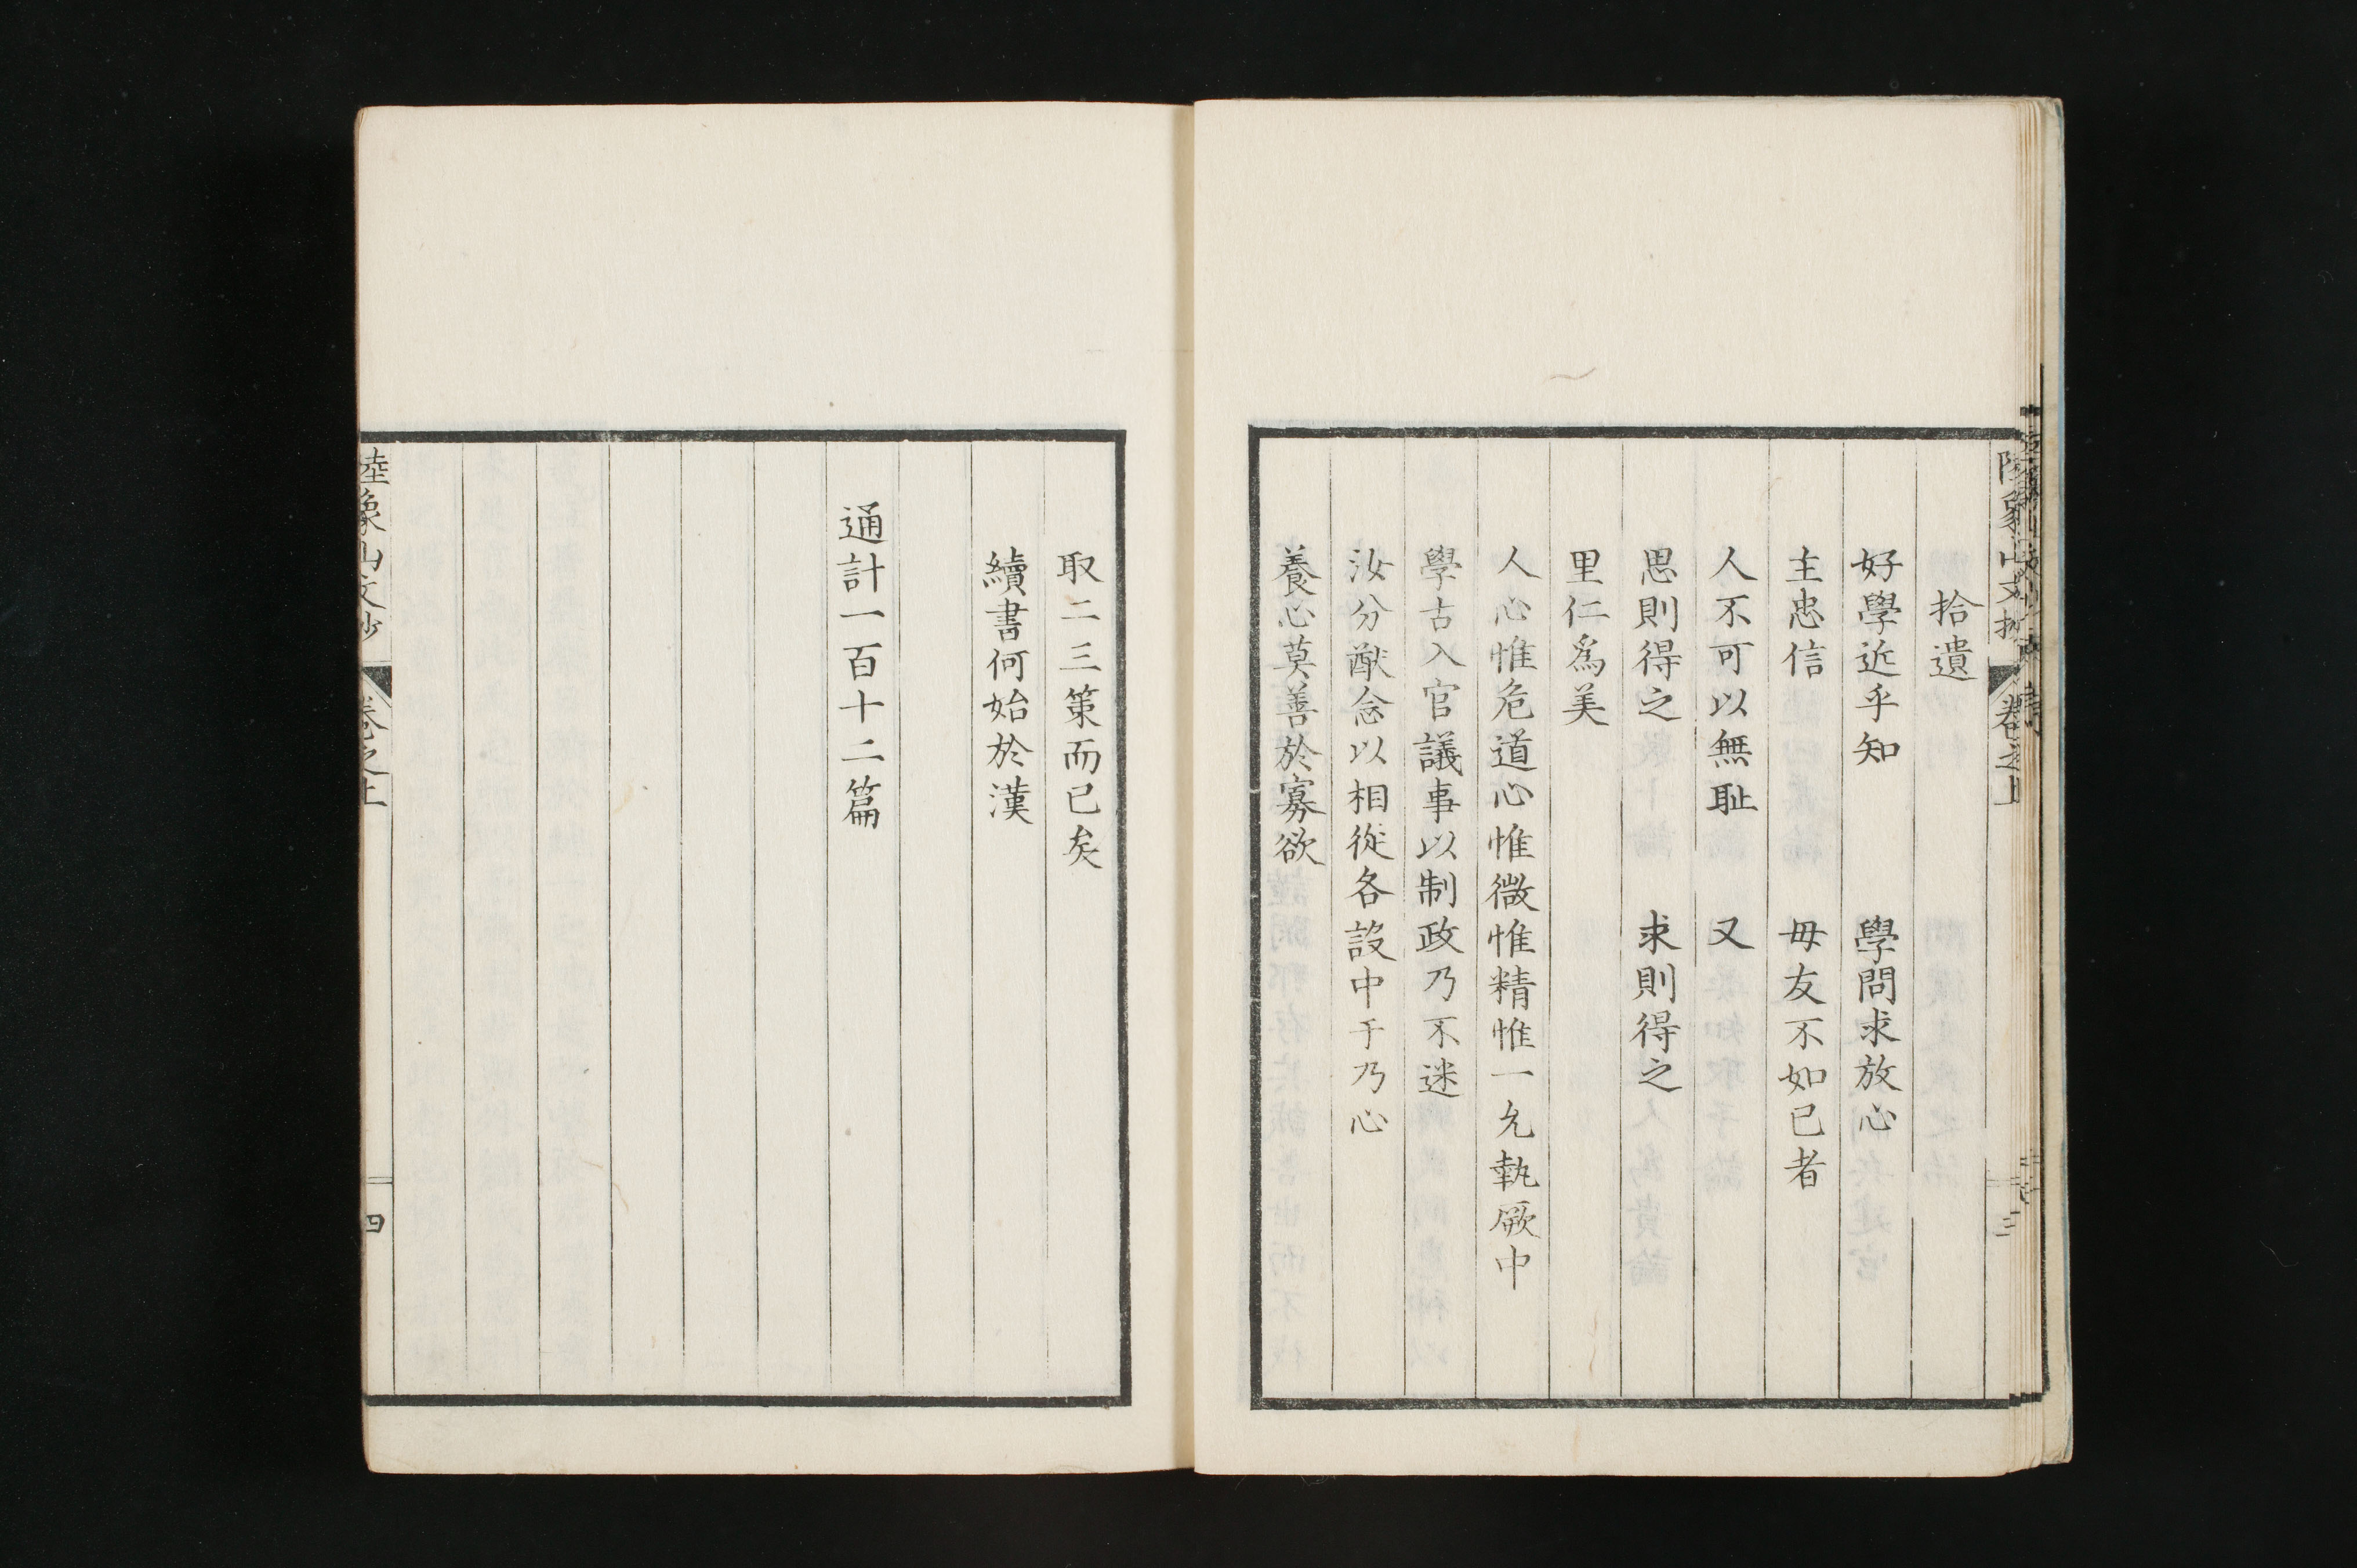 陸象山文抄 卷之上 三
拾遺
好學近乎知 學問求放心
主忠信 毋友不如已者
人不可以無耻 又
思則得之 求則得之
里仁爲美
人心惟危道心惟微惟精惟一允執厥中
學古入官議事以制政乃不迷
汝分猷念以相從各設中于乃心
養心莫善於寡欲
取二三策而已矣
續書何始於漢
通計一百十二篇
陸象山文抄 卷之上 四